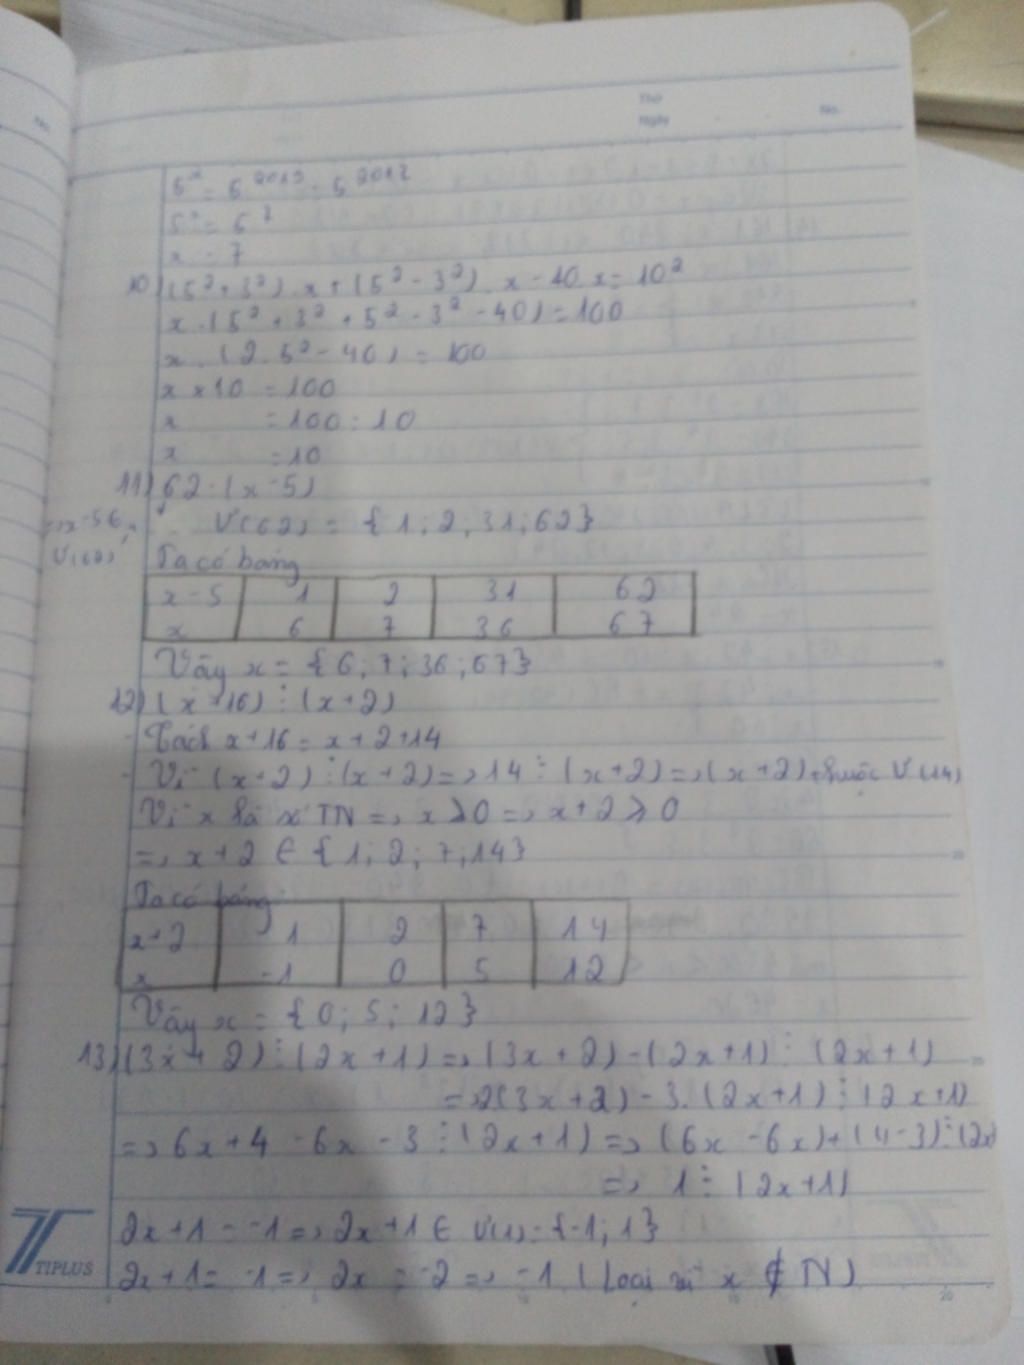 Thứ
Ngày
No.
5ˣ = 5²⁰¹⁹ : 5²⁰¹²
5ˣ = 5⁷
x = 7
10) (5² + 3²) . x + (5² - 3²) . x - 40 . x = 10²
x . (5² + 3² + 5² - 3² - 40) = 100
x . (2 . 5² - 40) = 100
x × 10 = 100
x = 100 : 10
x = 10
11) 62 ⋮ (x - 5)
=> x - 5 ∈ Ư(62)
Ư(62) = {1; 2; 31; 62}
Ta có bảng
x - 5 1 2 31 62
x 6 7 36 67
Vậy x = {6; 7; 36; 67}
12) (x + 16) ⋮ (x + 2)
- Tách x + 16 = x + 2 + 14
- Vì (x + 2) ⋮ (x + 2) => 14 ⋮ (x + 2) => (x + 2) thuộc Ư(14)
Vì x là số TN => x ⩾ 0 => x + 2 ⩾ 0
=> x + 2 ∈ {1; 2; 7; 14}
Ta có bảng:
x + 2 1 2 7 14
x -1 0 5 12
Vậy x = {0; 5; 12}
13) (3x + 2) ⋮ (2x + 1) => (3x + 2) - (2x + 1) ⋮ (2x + 1)
=> 2(3x + 2) - 3.(2x + 1) ⋮ (2x + 1)
=> 6x + 4 - 6x - 3 ⋮ (2x + 1) => (6x - 6x) + (4 - 3) ⋮ (2x)
=> 1 ⋮ (2x + 1)
2x + 1 = -1 => 2x + 1 ∈ Ư(1) = {-1; 1}
2x + 1 = -1 => 2x = -2 => -1 (Loại vì x ∉ N)
TIPLUS